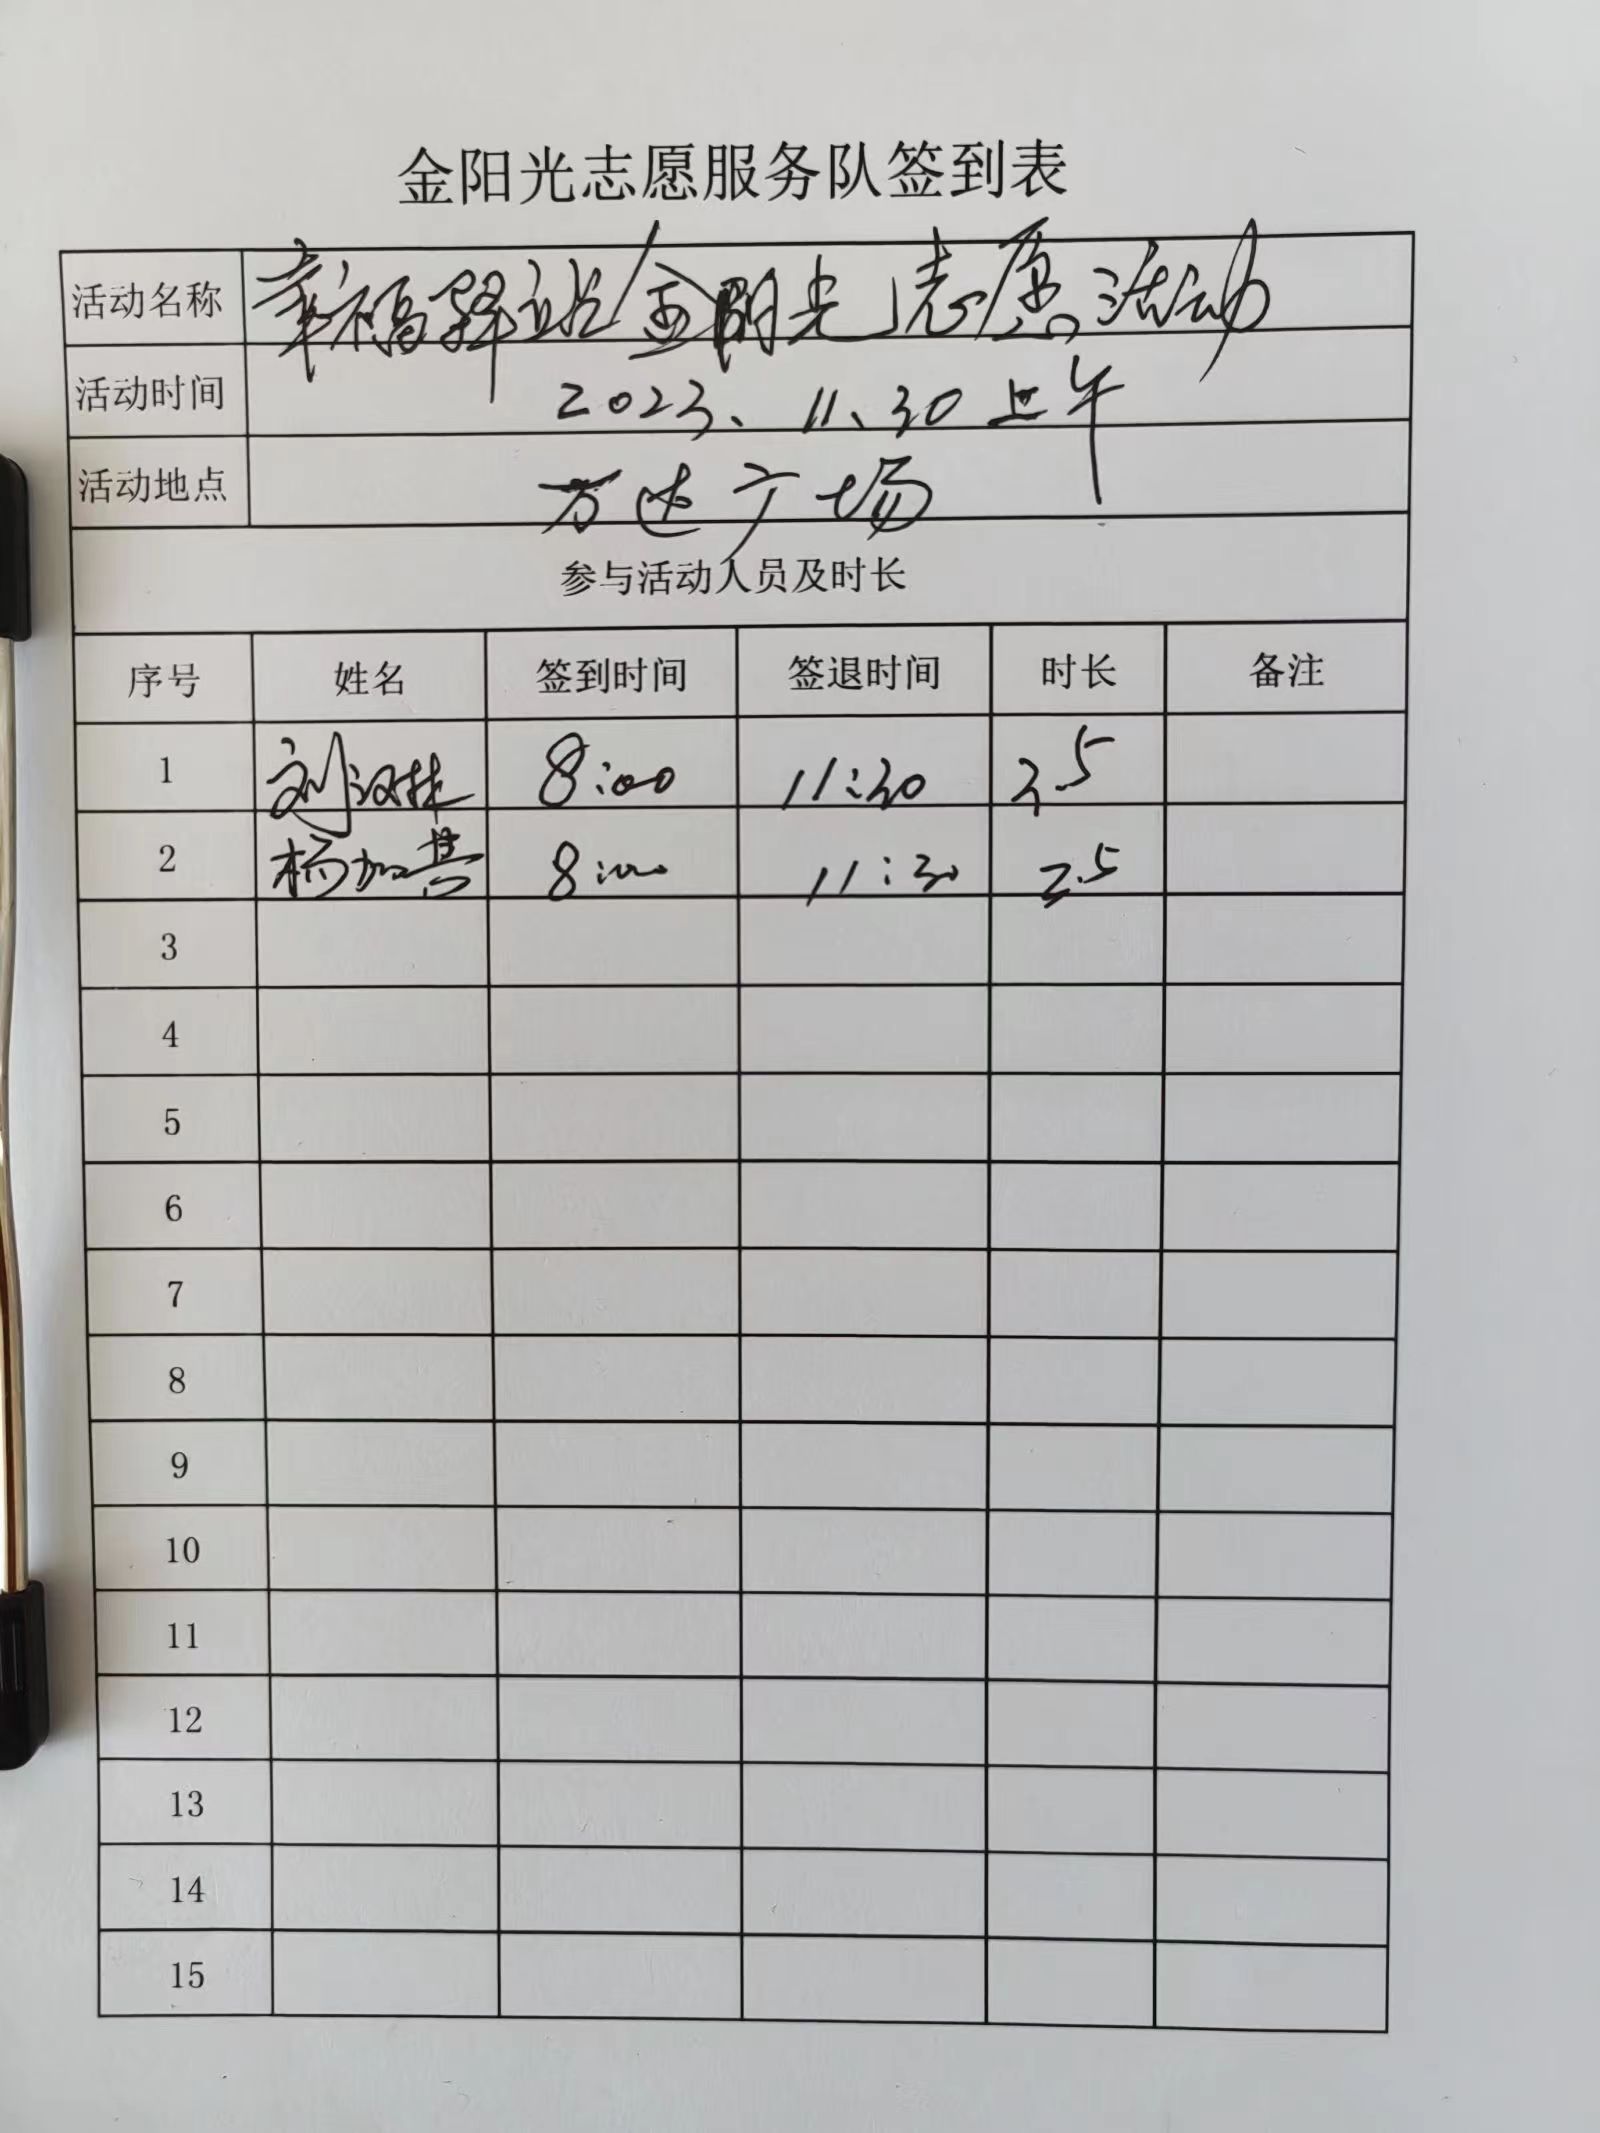 金阳光志愿服务队签到表
活动名称 幸福驿站/金阳光志愿活动
活动时间 2023、11、30上午
活动地点 万达广场
参与活动人员及时长
序号 姓名 签到时间 签退时间 时长 备注
1 刘汉林 8:00 11:30 3.5
2 杨加其 8:00 11:30 3.5
3
4
5
6
7
8
9
10
11
12
13
14
15